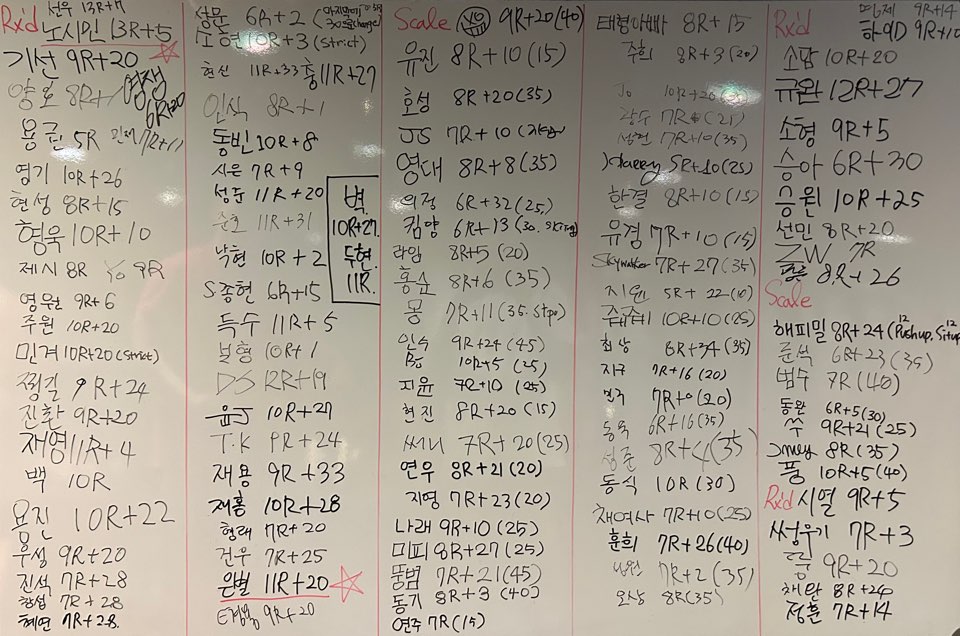 Rx'd
선우 13R+7
노시민 13R+5
기선 9R+20
양호 8R+1
영재
6R+20
용근 5R
7R+11
영기 10R+26
현성 8R+15
형욱 10R+10
제시 8R
Yo 9R
영원 9R+6
주원 10R+20
민겨 10R+20 (strict)
찡길 9R+24
진환 9R+20
재영 11R+4
백 10R
용진 10R+22
우성 9R+20
진석 7R+28
창섭 7R+28
혜연 7R+28
상문 6R+2
소현 10R+3 (strict)
현신 11R+33
훙 11R+27
인식 8R+1
동빈 10R+8
시은 7R+9
성준 11R+20
준호 11R+31
낙현 10R+2
S종현 6R+15
득수 11R+5
보형 10R+1
DS 12R+19
윤J 10R+27
T.K 9R+24
재용 9R+33
재홍 10R+28
형래 7R+20
건우 7R+25
은별 11R+20
9R+20
벽
10R+27.
두현
11R.
Scale
9R+20(40)
유진 8R+10(15)
호성 8R+20(35)
JS 7R+10
영대 8R+8(35)
의정 6R+32(25)
킴양 6R+13
라임 8R+5(20)
홍순 8R+6(35)
몽 7R+11(35. Step)
인수 9R+24(45)
10R+5(25)
지윤 7R+10(25)
현진 8R+20(15)
써니 7R+20(25)
연우 8R+21(20)
지영 7R+23(20)
나래 9R+10(25)
미피 8R+27(25)
뚱범 7R+21(45)
동기 8R+3(40)
연주 7R(15)
태형아빠 8R+15
주희 8R+3(20)
Jo
7R+10(35)
Harry 5R+10(25)
한결 8R+10(15)
유경 7R+10(15)
Skywalker 7R+27(35)
지원 5R+22(10)
10R+10(25)
희상 8R+34(35)
지구 7R+16(20)
민구 7R+0(20)
동욱 6R+16(35)
성준
동식 10R(30)
채여사 7R+10(25)
훈희 7R+26(40)
7R+2(35)
오상 8R(35)
Rx'd
9R+14
하9D 9R+10
소팜 10R+20
규완 12R+27
소형 9R+5
승아 6R+30
승원 10R+25
선민 8R+20
ZW 7R
8R+26
Scale
해피밀 8R+24 (12 Push up, 12 Sit up
준석 6R+23(35)
범수 7R(40)
동완 6R+5(30)
쑤 9R+21(25)
Jney 8R(35)
풍 10R+5(40)
Rx'd 시열 9R+5
싸성우기 7R+3
룽 9R+20
채완 8R+20
정훈 7R+14